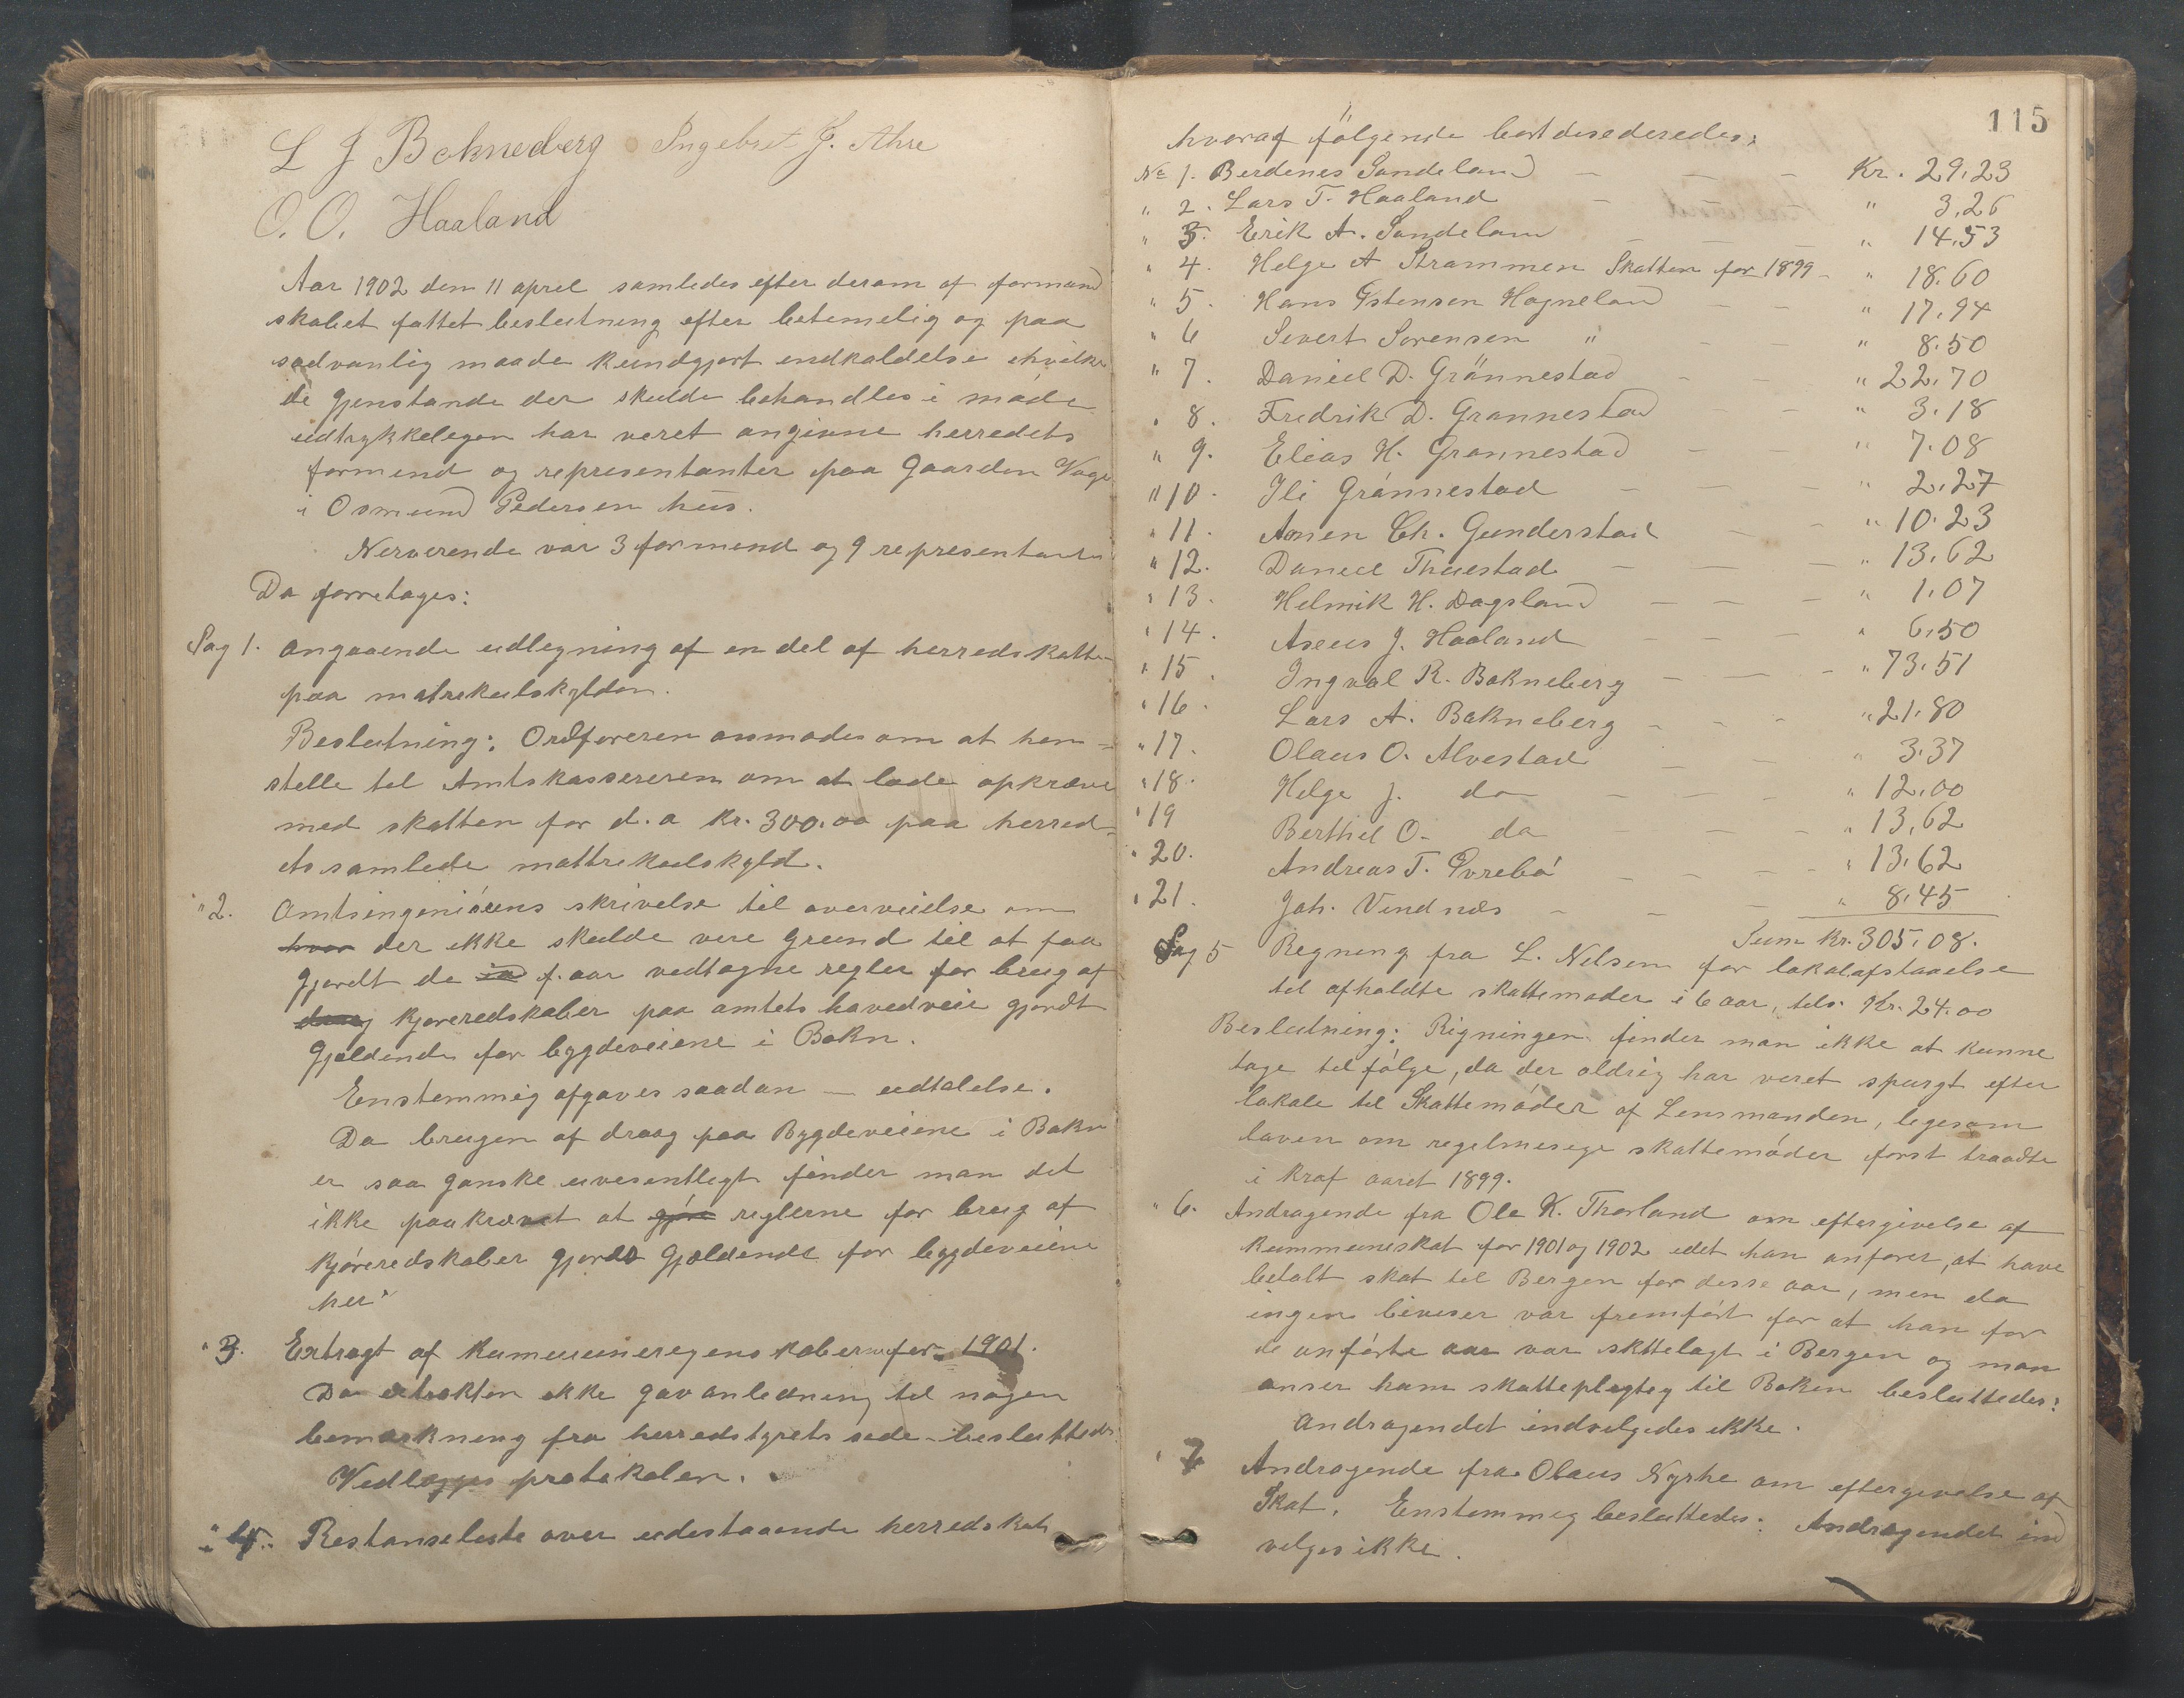 L J Bokneberg Ingebret J. Ahre
O. O. Haaland
Aar 1902 den 11 april samledes efter derom af formand
skabet fattet beslutning efter betemelig og paa
sedvanlig maade kundgjort indkaldelse ihvilke
de gjenstande der skulde behandles i møde
udtrykkelegen har veret angivne herredets
formend og representanter paa Gaarden Vage
i Osmund Pedersen hus.
Nerverende var 3 formend og 9 representanter
Da forretoges:
Sag 1. Angaaende udlegning af en del af herredskatten
paa matrikulskylden.
Beslutning: Ordføreren anmodes om at hen=
stelle til Amtskassereren om at lade opkræve
med skatten for d. a kr. 300.00 paa herred=
ets samlede mattrikulskyld.
" 2. Amtsingeniørens skrivelse til overveielse om
hvor der ikke skulde vere grund til at faa
gjordt de i f. aar vedtagne regler for brug af
draag kjøreredskaber paa amtets havedveie gjordt
Gjældende for bygdeveiene i Bokn.
Enstemmig afgaves saadan — udtalelse.
Da brugen af draag paa Bygdeveiene i Bokn
er saa ganske uvesentlegt finder man det
ikke paakrævet at gjøre reglerne for brug af
kjøreredskaber gjordt Gjældende for bygdeveiene
her.
" 3. Extragt af kummuneregenskaberne for 1901.
Da extrakten ikke gav anledning til nogen
bemærkning fra herredstyrets side besluttedes:
Vedlægges protokolen.
" 4. Restanseliste over udestaaende herredskat
115
hvoraf følgende bortdesederedes:
No 1. Berdenes Sandeland — — — Kr. 29.23
" 2. Lars T. Haaland — — " 3.26
" 3. Erik A. Sandeland — — — " 14.53
" 4. Helge A Strammen Skatten for 1899 — " 18.60
" 5. Hans Østensen Hogneland — — " 17.94
" 6 Severt Sørensen " — — " 8.50
" 7. Daniel D. Grønnestad — — " 22.70
" 8. Fredrik D. Grønnestad — " 3.18
" 9. Elias H. Grønnestad — — " 7.08
" 10. Ili Grønnestad — — — " 2.27
" 11. Amen Ch. Gunderstad — — " 10.23
" 12. Daniel Thuestad — — — " 13.62
" 13. Helmik H. Dagsland — — — " 1.07
" 14. Aseus J. Haaland — — — " 6.50
" 15. Ingval R. Bokneberg — — — " 73.51
" 16. Lars A. Bokneberg — — — " 21.80
" 17. Olaus O. Alvestad — — " 3.37
" 18. Helge J. do — — — " 12.00
" 19 Berthel O. do — — — " 13.62
" 20. Andreas T. Øvrebø — — — " 13.62
" 21. Joh. Vendnes — — — " 8.45
Sum Kr. 305.08.
Sag 5 Regning fra L. Nilsen for lokalafstaaelse
til afholdte skattemøder i 6 aar, tils. Kr. 24.00
Beslutning: Rigningen finder man ikke at kunne
tage til følge, da der aldrig har veret spurgt efter
lokale til Skattemøder af Lensmanden, legesom
loven om regelmesege skattemøder først traadte
i kraf aaret 1899.
" 6. Andragende fra Ole K. Thorland om eftergivelse af
kummuneskat for 1901 og 1902 idet han anfører, at have
betalt skat til Bergen for desse aar, men da
ingen beviser var fremført for at han for
de anførte aar var skttelagt i Bergen og man
anser ham skatteplegteg til Boken besluttedes:
Andragendet indvelgedes ikke.
" 7 Andragende fra Olaus Nyrhe om eftergevelse af
Skat. Enstemmeg besluttedes: Andragendet ind
velges ikke.